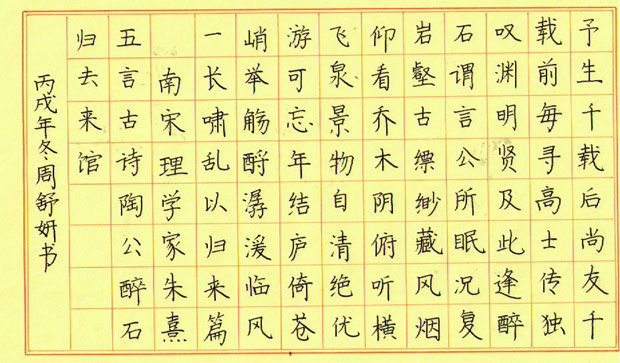 予生千载后尚友千
载前每寻高士传独
叹渊明贤及此逢醉
石谓言公所眠况复
岩壑古缥缈藏风烟
仰看乔木阴俯听横
飞泉景物自清绝优
游可忘年结庐倚苍
峭举觞酹潺湲临风
一长啸乱以归来篇
南宋理学家朱熹
五言古诗陶公醉石
归去来馆
丙戌年冬周舒妍书